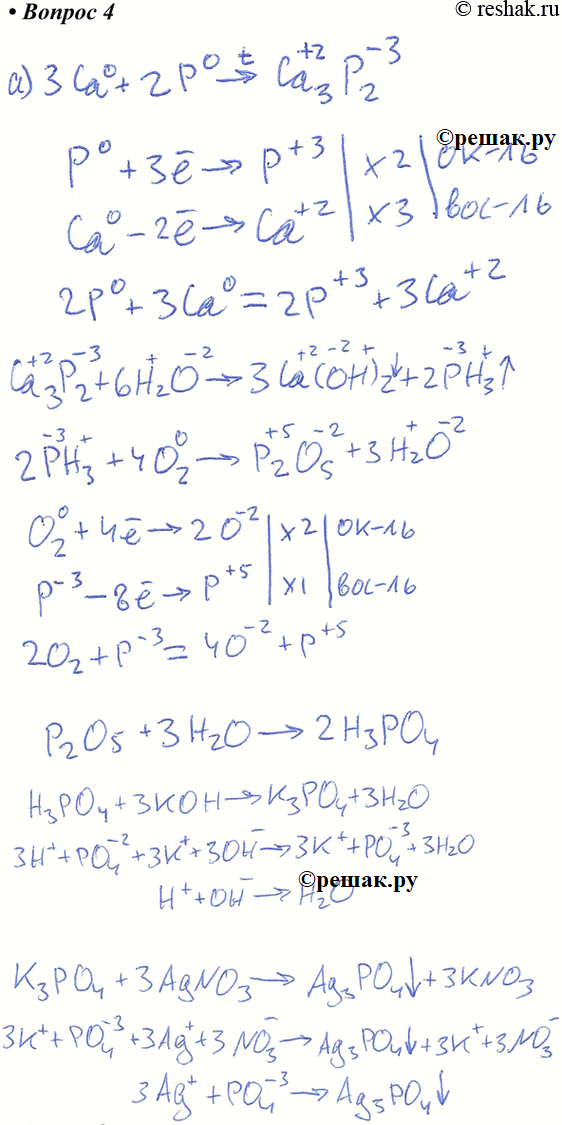 • Вопрос 4
© reshak.ru
а) 3Ca⁰ + 2P⁰ →ᵗ Ca₃⁺²P₂⁻³
©решак.ру
P⁰ + 3ē → P⁺³ | x2 | ок-ль
Ca⁰ - 2ē → Ca⁺² | x3 | вос-ль
2P⁰ + 3Ca⁰ = 2P⁺³ + 3Ca⁺²
Ca₃⁺²P₂⁻³ + 6H₂⁺O⁻² → 3Ca⁺²(O⁻²H⁺)₂↓ + 2P⁻³H₃⁺↑
2P⁻³H₃⁺ + 4O₂⁰ → P₂⁺⁵O₅⁻² + 3H₂⁺O⁻²
O₂⁰ + 4ē → 2O⁻² | x2 | ок-ль
P⁻³ - 8ē → P⁺⁵ | x1 | вос-ль
2O₂ + P⁻³ = 4O⁻² + P⁺⁵
P₂O₅ + 3H₂O → 2H₃PO₄
H₃PO₄ + 3KOH → K₃PO₄ + 3H₂O
3H⁺ + PO₄⁻² + 3K⁺ + 3OH⁻ → 3K⁺ + PO₄⁻³ + 3H₂O
©решак.ру
H⁺ + OH⁻ → H₂O
K₃PO₄ + 3AgNO₃ → Ag₃PO₄↓ + 3KNO₃
3K⁺ + PO₄⁻³ + 3Ag⁺ + 3NO₃⁻ → Ag₃PO₄↓ + 3K⁺ + 3NO₃⁻
3Ag⁺ + PO₄⁻³ → Ag₃PO₄↓